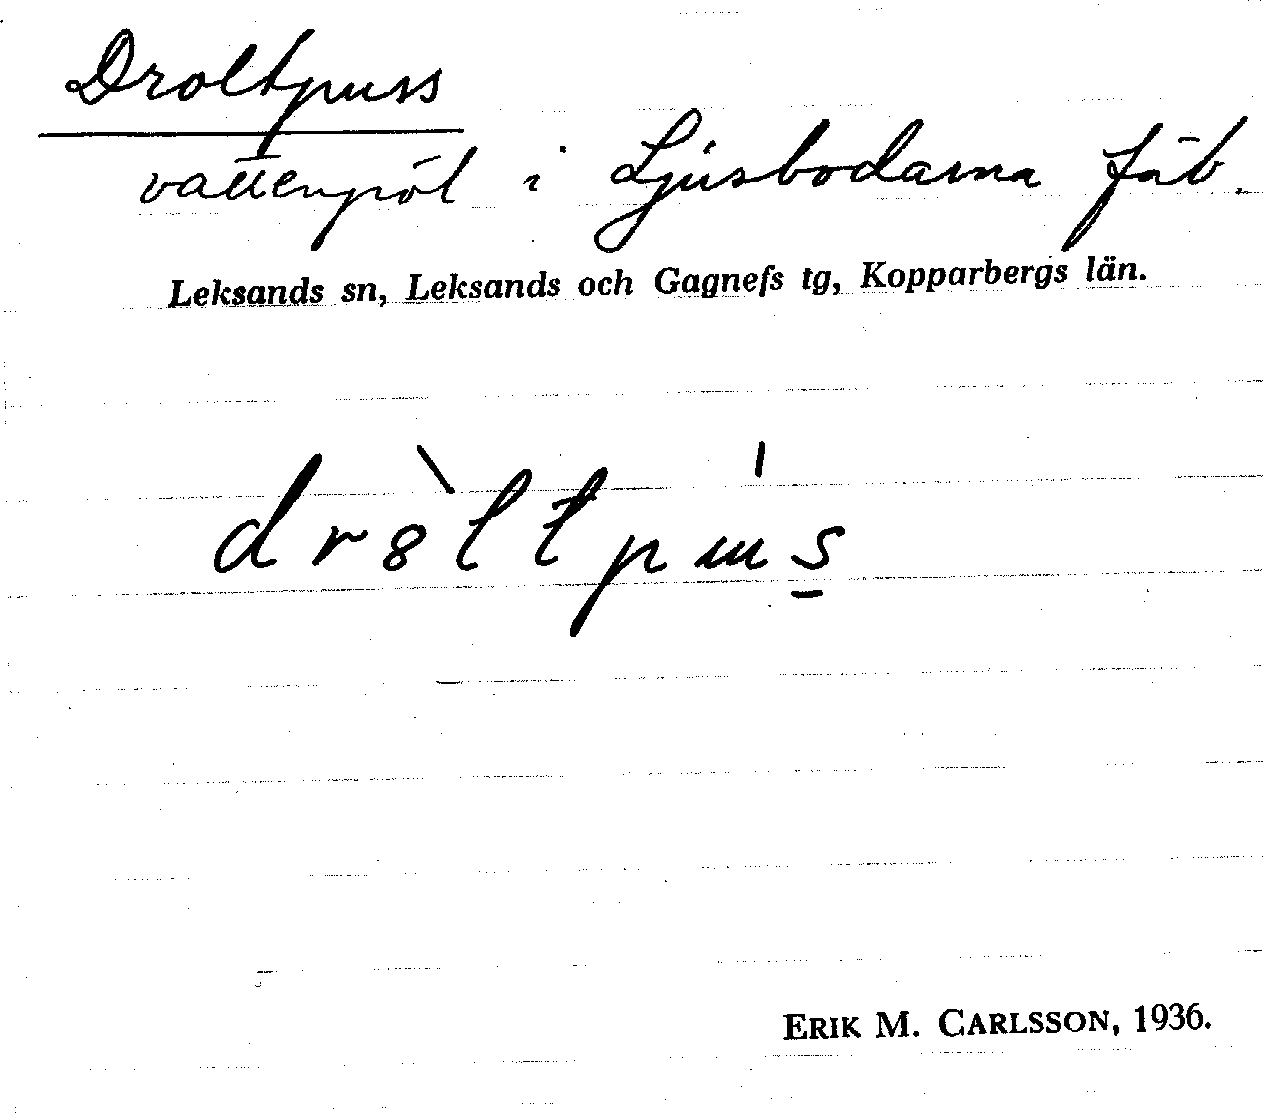 Droltpuss
vattenpöl i Ljusbodarna fäb.
Leksands sn, Leksands och Gagnefs tg, Kopparbergs län.
ERIK M. CARLSSON, 1936.